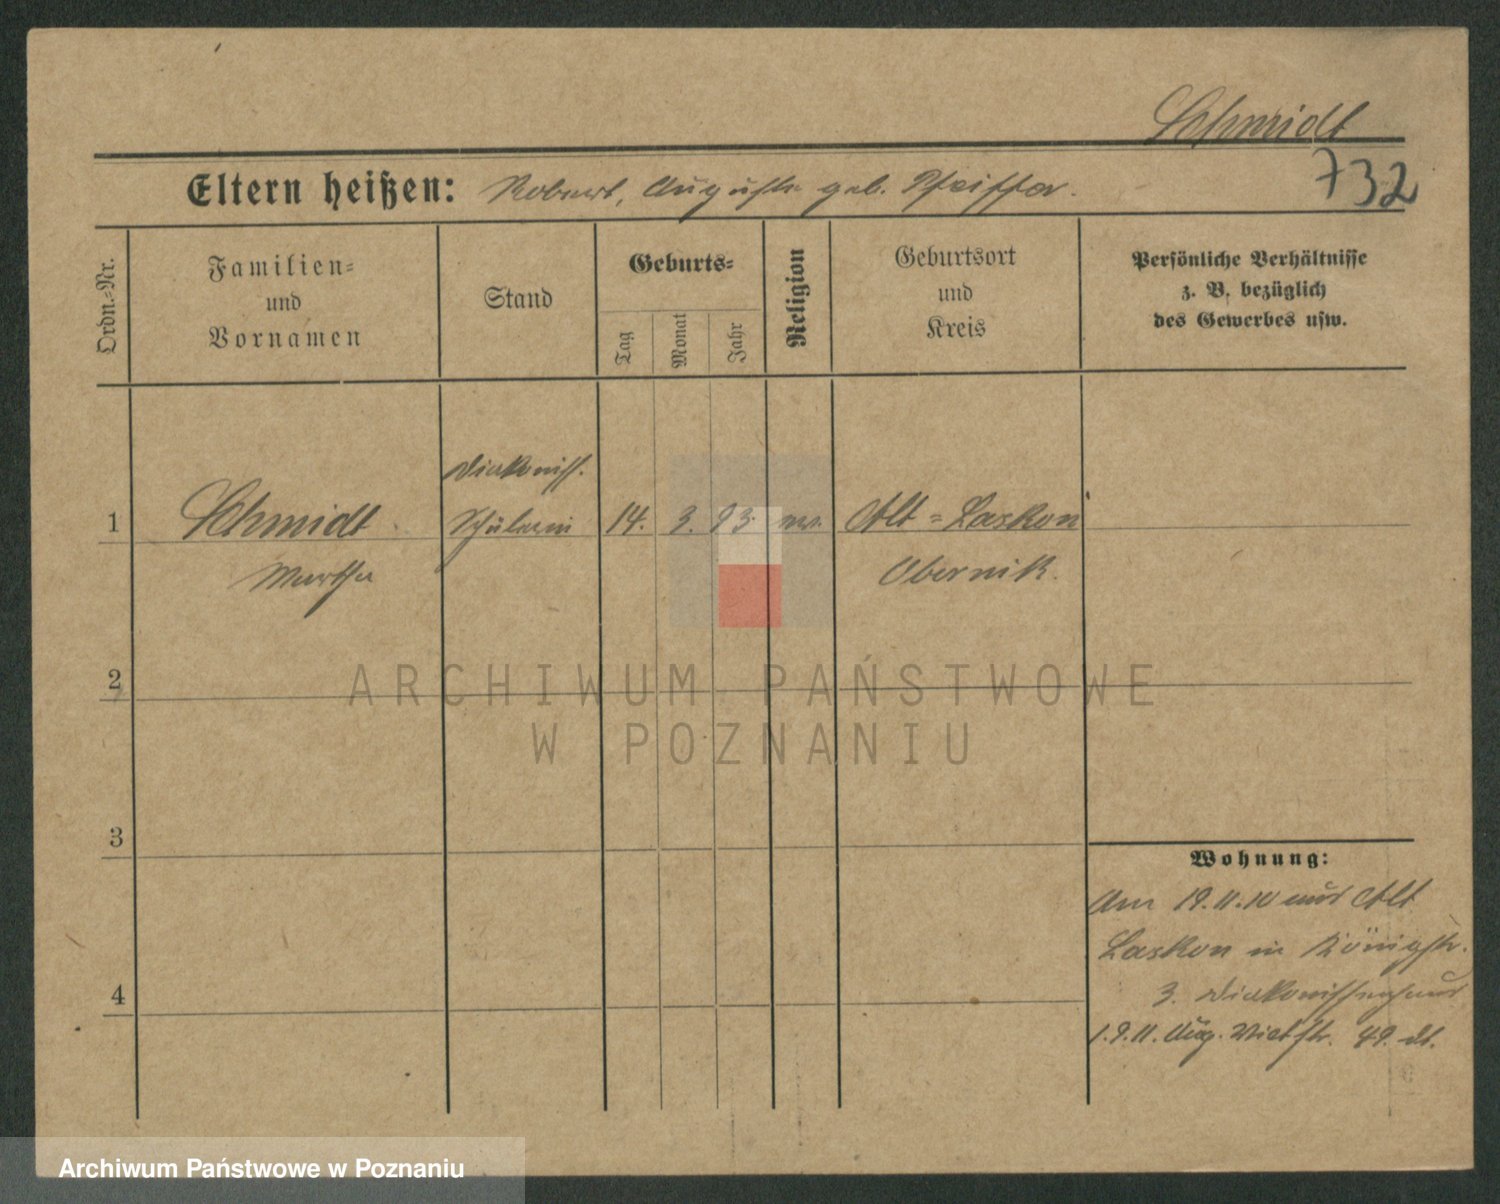 Schmidt
732
Eltern heißen: Robert, Auguste geb. Pfeiffer.
Ordn.-Nr.
Familien-
und
Vornamen
Stand
Geburts-
Tag
Monat
Jahr
Religion
Geburtsort
und
Kreis
Persönliche Verhältnisse
z. B. bezüglich
des Gewerbes usw.
Diakoniss.
1 Schmidt Schülerin 14. 3. 93. ev. Alt-Laskon
Martha Obernik.
2
3
4
Wohnung:
Am 19.11.10 aus Alt
Laskon in Königstr.
3. Diakonissenhaus
1.9.11. Aug. Victstr. 49. dt.
ARCHIWUM PAŃSTWOWE
W POZNANIU
Archiwum Państwowe w Poznaniu